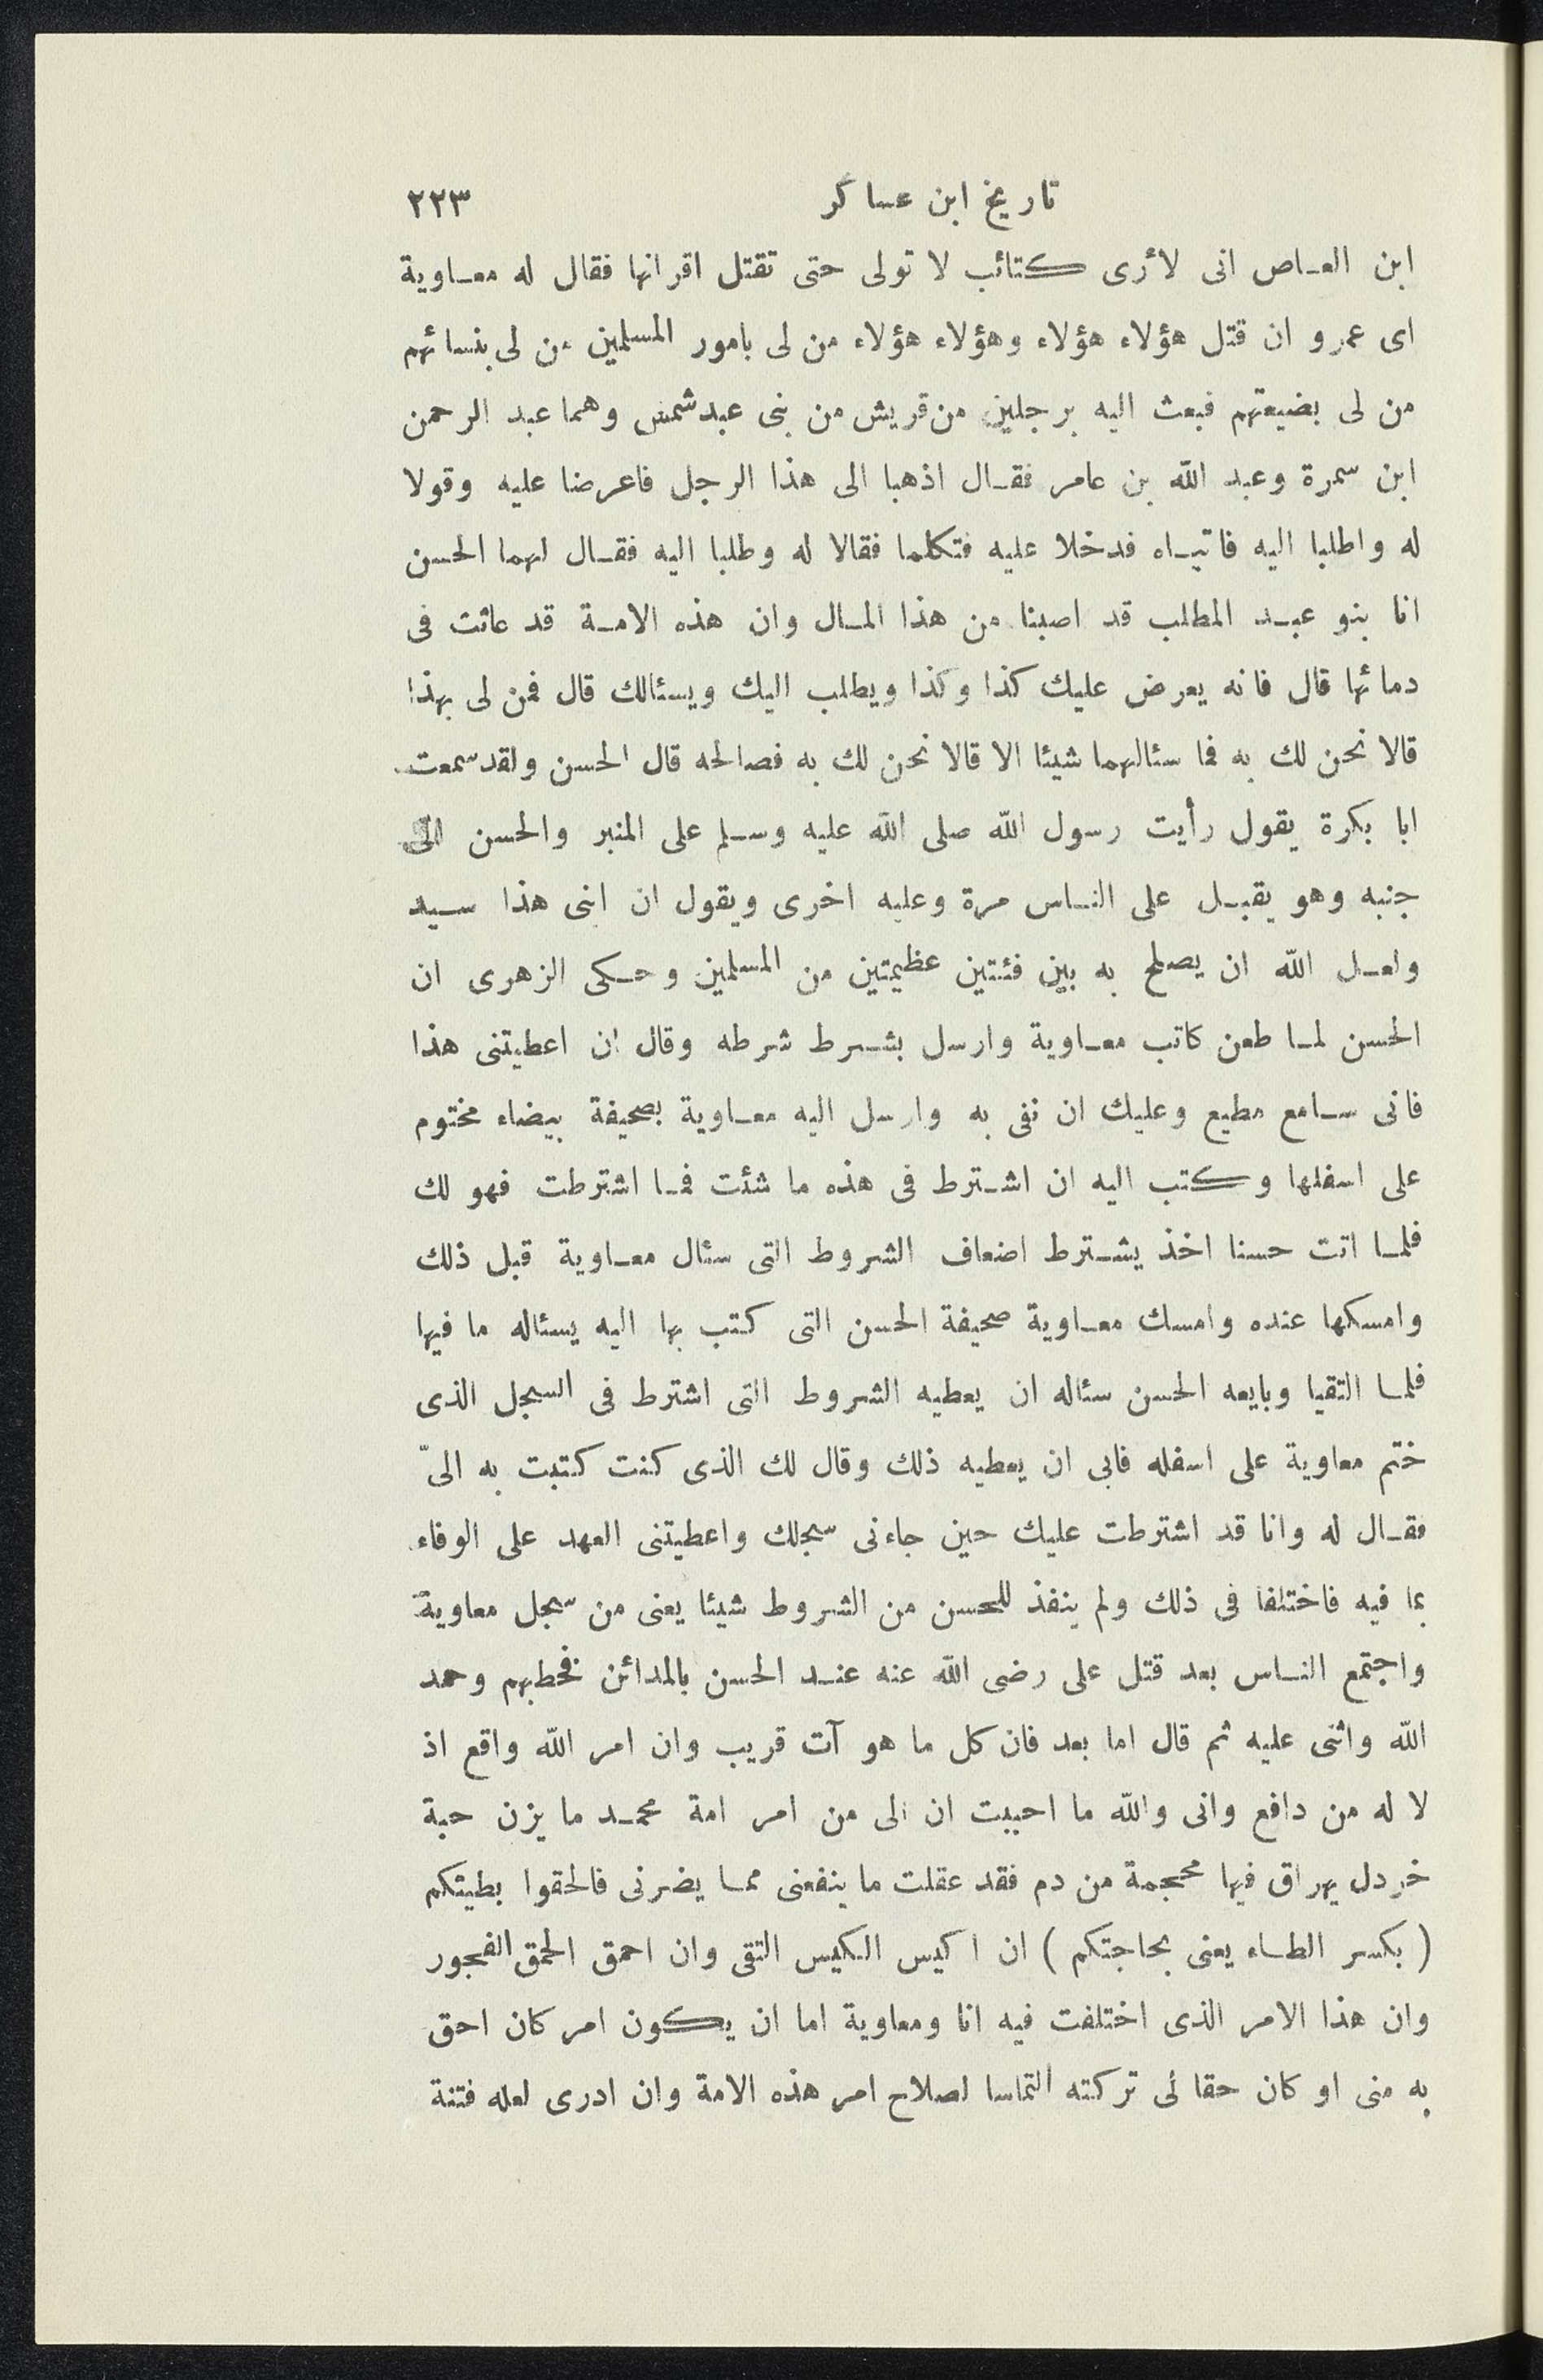 تاريخ ابن عساكر ٢٢٣
ابن العاص انى لأرى كتائب لا تولى حتى تقتل اقرانها فقال له معاوية
اى عمرو ان قتل هؤلاء هؤلاء وهؤلاء هؤلاء من لى بامور المسلمين من لى بنسائهم
من لى بضيعتهم فبعث اليه برجلين من قريش من بنى عبد شمس وهما عبد الرحمن
ابن سمرة وعبد الله بن عامر فقال اذهبا الى هذا الرجل فاعرضا عليه وقولا
له واطلبا اليه فاتياه فدخلا عليه فتكلما فقالا له وطلبا اليه فقال لهما الحسن
انا بنو عبد المطلب قد اصبنا من هذا المال وان هذه الامة قد عاثت فى
دمائها قال فانه يعرض عليك كذا وكذا ويطلب اليك ويسئالك قال فمن لى بهذا
قالا نحن لك به فما سئالهما شيئا الا قالا نحن لك به فصالحه قال الحسن ولقد سمعت
ابا بكرة يقول رأيت رسول الله صلى الله عليه وسلم على المنبر والحسن الى
جنبه وهو يقبل على الناس مرة وعليه اخرى ويقول ان ابنى هذا سيد
ولعل الله ان يصلح به بين فئتين عظيمتين من المسلمين وحكى الزهرى ان
الحسن لما طعن كاتب معاوية وارسل بشرط شرطه وقال ان اعطيتنى هذا
فانى سامع مطيع وعليك ان تفى به وارسل اليه معاوية بصحيفة بيضاء مختوم
على اسفلها وكتب اليه ان اشترط فى هذه ما شئت فما اشترطت فهو لك
فلما اتت حسنا اخذ يشترط اضعاف الشروط التى سئال معاوية قبل ذلك
وامسكها عنده وامسك معاوية صحيفة الحسن التى كتب بها اليه يسئاله ما فيها
فلما التقيا وبايعه الحسن سئاله ان يعطيه الشروط التى اشترط فى السجل الذى
ختم معاوية على اسفله فابى ان يعطيه ذلك وقال لك الذى كنت كتبت به الىّ
فقال له وانا قد اشترطت عليك حين جاءنى سجلك واعطيتنى العهد على الوفاء
بما فيه فاختلفا فى ذلك ولم ينفذ للحسن من الشروط شيئا يعنى من سجل معاوية
واجتمع الناس بعد قتل على رضى الله عنه عند الحسن بالمدائن فخطبهم وحمد
الله واثنى عليه ثم قال اما بعد فان كل ما هو آت قريب وان امر الله واقع اذ
لا له من دافع وانى والله ما احببت ان الى من امر امة محمد ما يزن حبة
خردل يهراق فيها محجمة من دم فقد عقلت ما ينفعنى مما يضرنى فالحقوا بطيتكم
( بكسر الطاء يعنى بحاجتكم ) ان اكيس الكيس التقى وان احمق الحمق الفجور
وان هذا الامر الذى اختلفت فيه انا ومعاوية اما ان يكون امر كان احق
به منى او كان حقا لى تركته التماسا لصلاح امر هذه الامة وان ادرى لعله فتنة